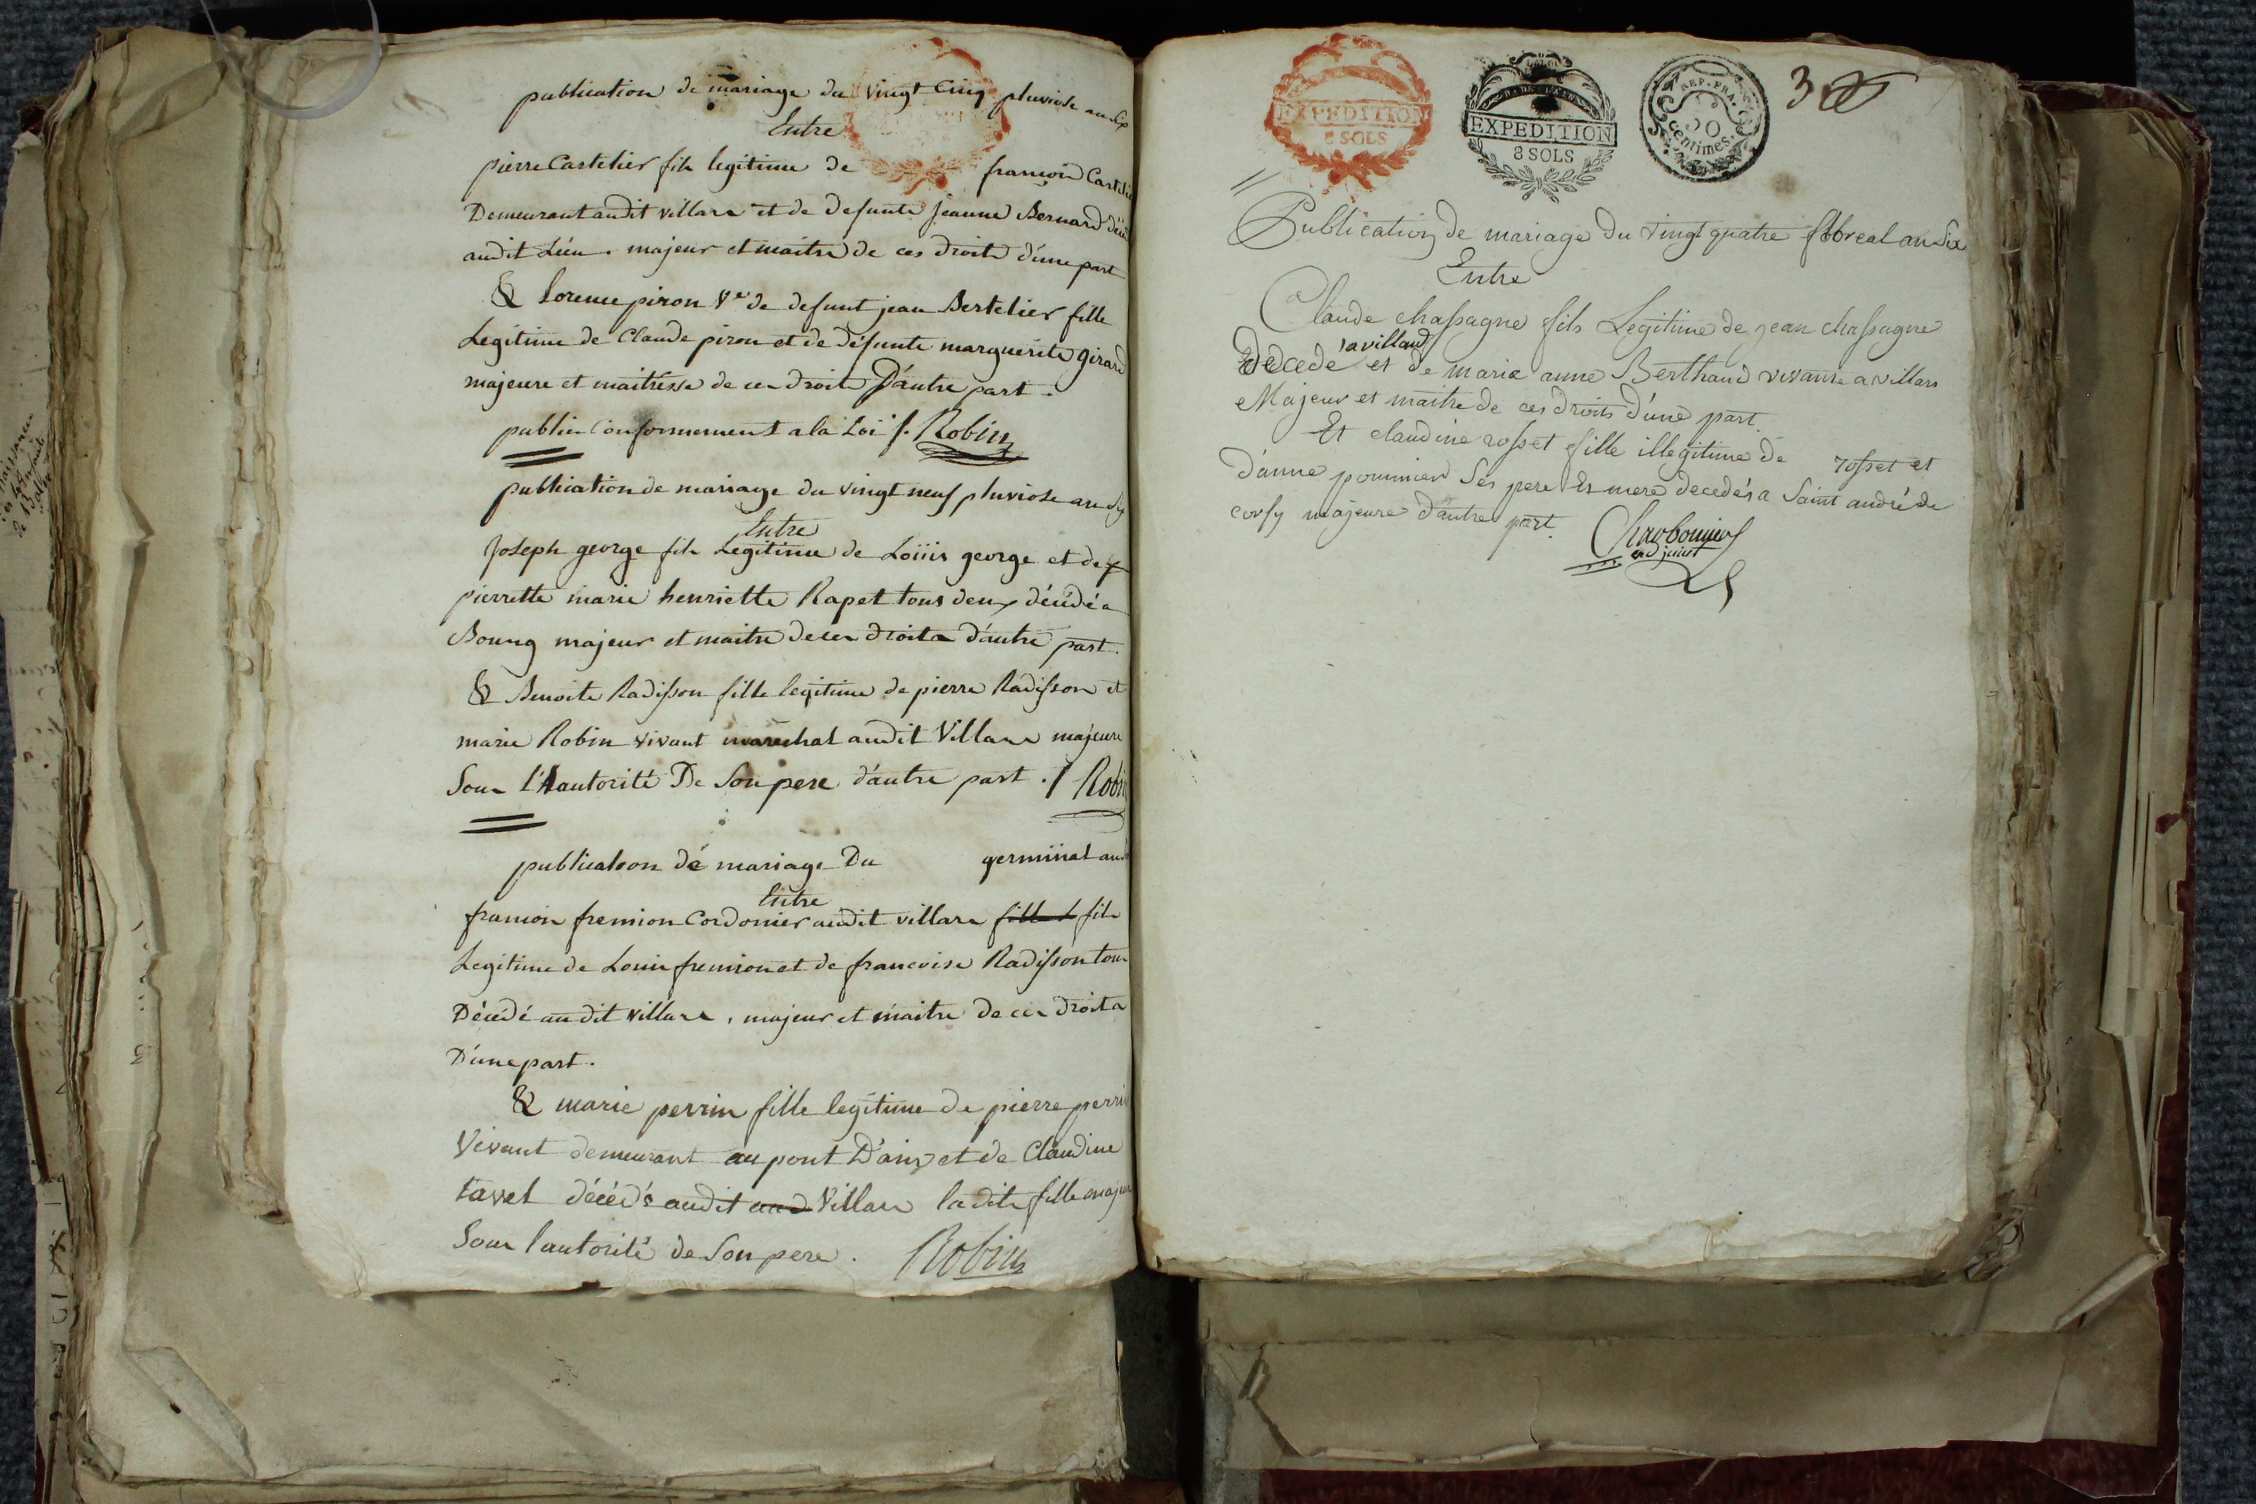 publication de mariage du vingt cinq pluviose an six
Entre
pierre Castelier fils legitime de françois Casteli
Demeurant audit villars et de defunte jeanne Bernard
audit Lieu. majeur et maitre de ces droits d'une part
& lorence piron Ve de defunt jean Bertelier fille
Legitime de Claude piron et de défunte marguerite girard
majeure et maitresse de ces droits D'autre part.
publier Conformement a la Loi /. Robin
publication de mariage du vingt neuf pluviose an six
Entre
Joseph george fils Legitime de Loüis george et de
pierrette marie henriette Rapet tous deux décédé a
Bourg majeur et maitre de ces droits d'autre part.
& Benoite Radisson fille legitime de pierre Radisson et
marie Robin vivant marechal audit Villars majeure
Sous l'Hautorité De Son pere d'autre part. / Robin
publicatoon dé mariage Du germinal an
Entre
francois fremion Cordonier audit villars fille L fils
Legitime de Louis fremion et de francoise Radisson tous
Décédé audit villars, majeur et maitre de ces droits
D'une part.
& marie perrin fille legitime de pierre perrin
Vivant demeurant au pont D'ain et de Claudine
tavel décédé audit aud Villars ladite fille majeu
Sous l'autorité de Son pere. Robin
EXPEDITION
8 SOLS
EXPEDITION
8 SOLS
REP. FRA.
50
Centimes
3
Publication de mariage du vingt quatre floreal an Six
Entre
Claude chassagne fils Legitime de jean chassagne
a villard
Decede et de marie anne Berthaud vivante a villars
Majeur et maitre de ces droits d'une part.
Et claudine rosset fille illegitime de rosset et
d'anne pommier Ses pere et mere decedés a Saint andré de
corsy majeure d'autre part.
Charbonnier
adjoint